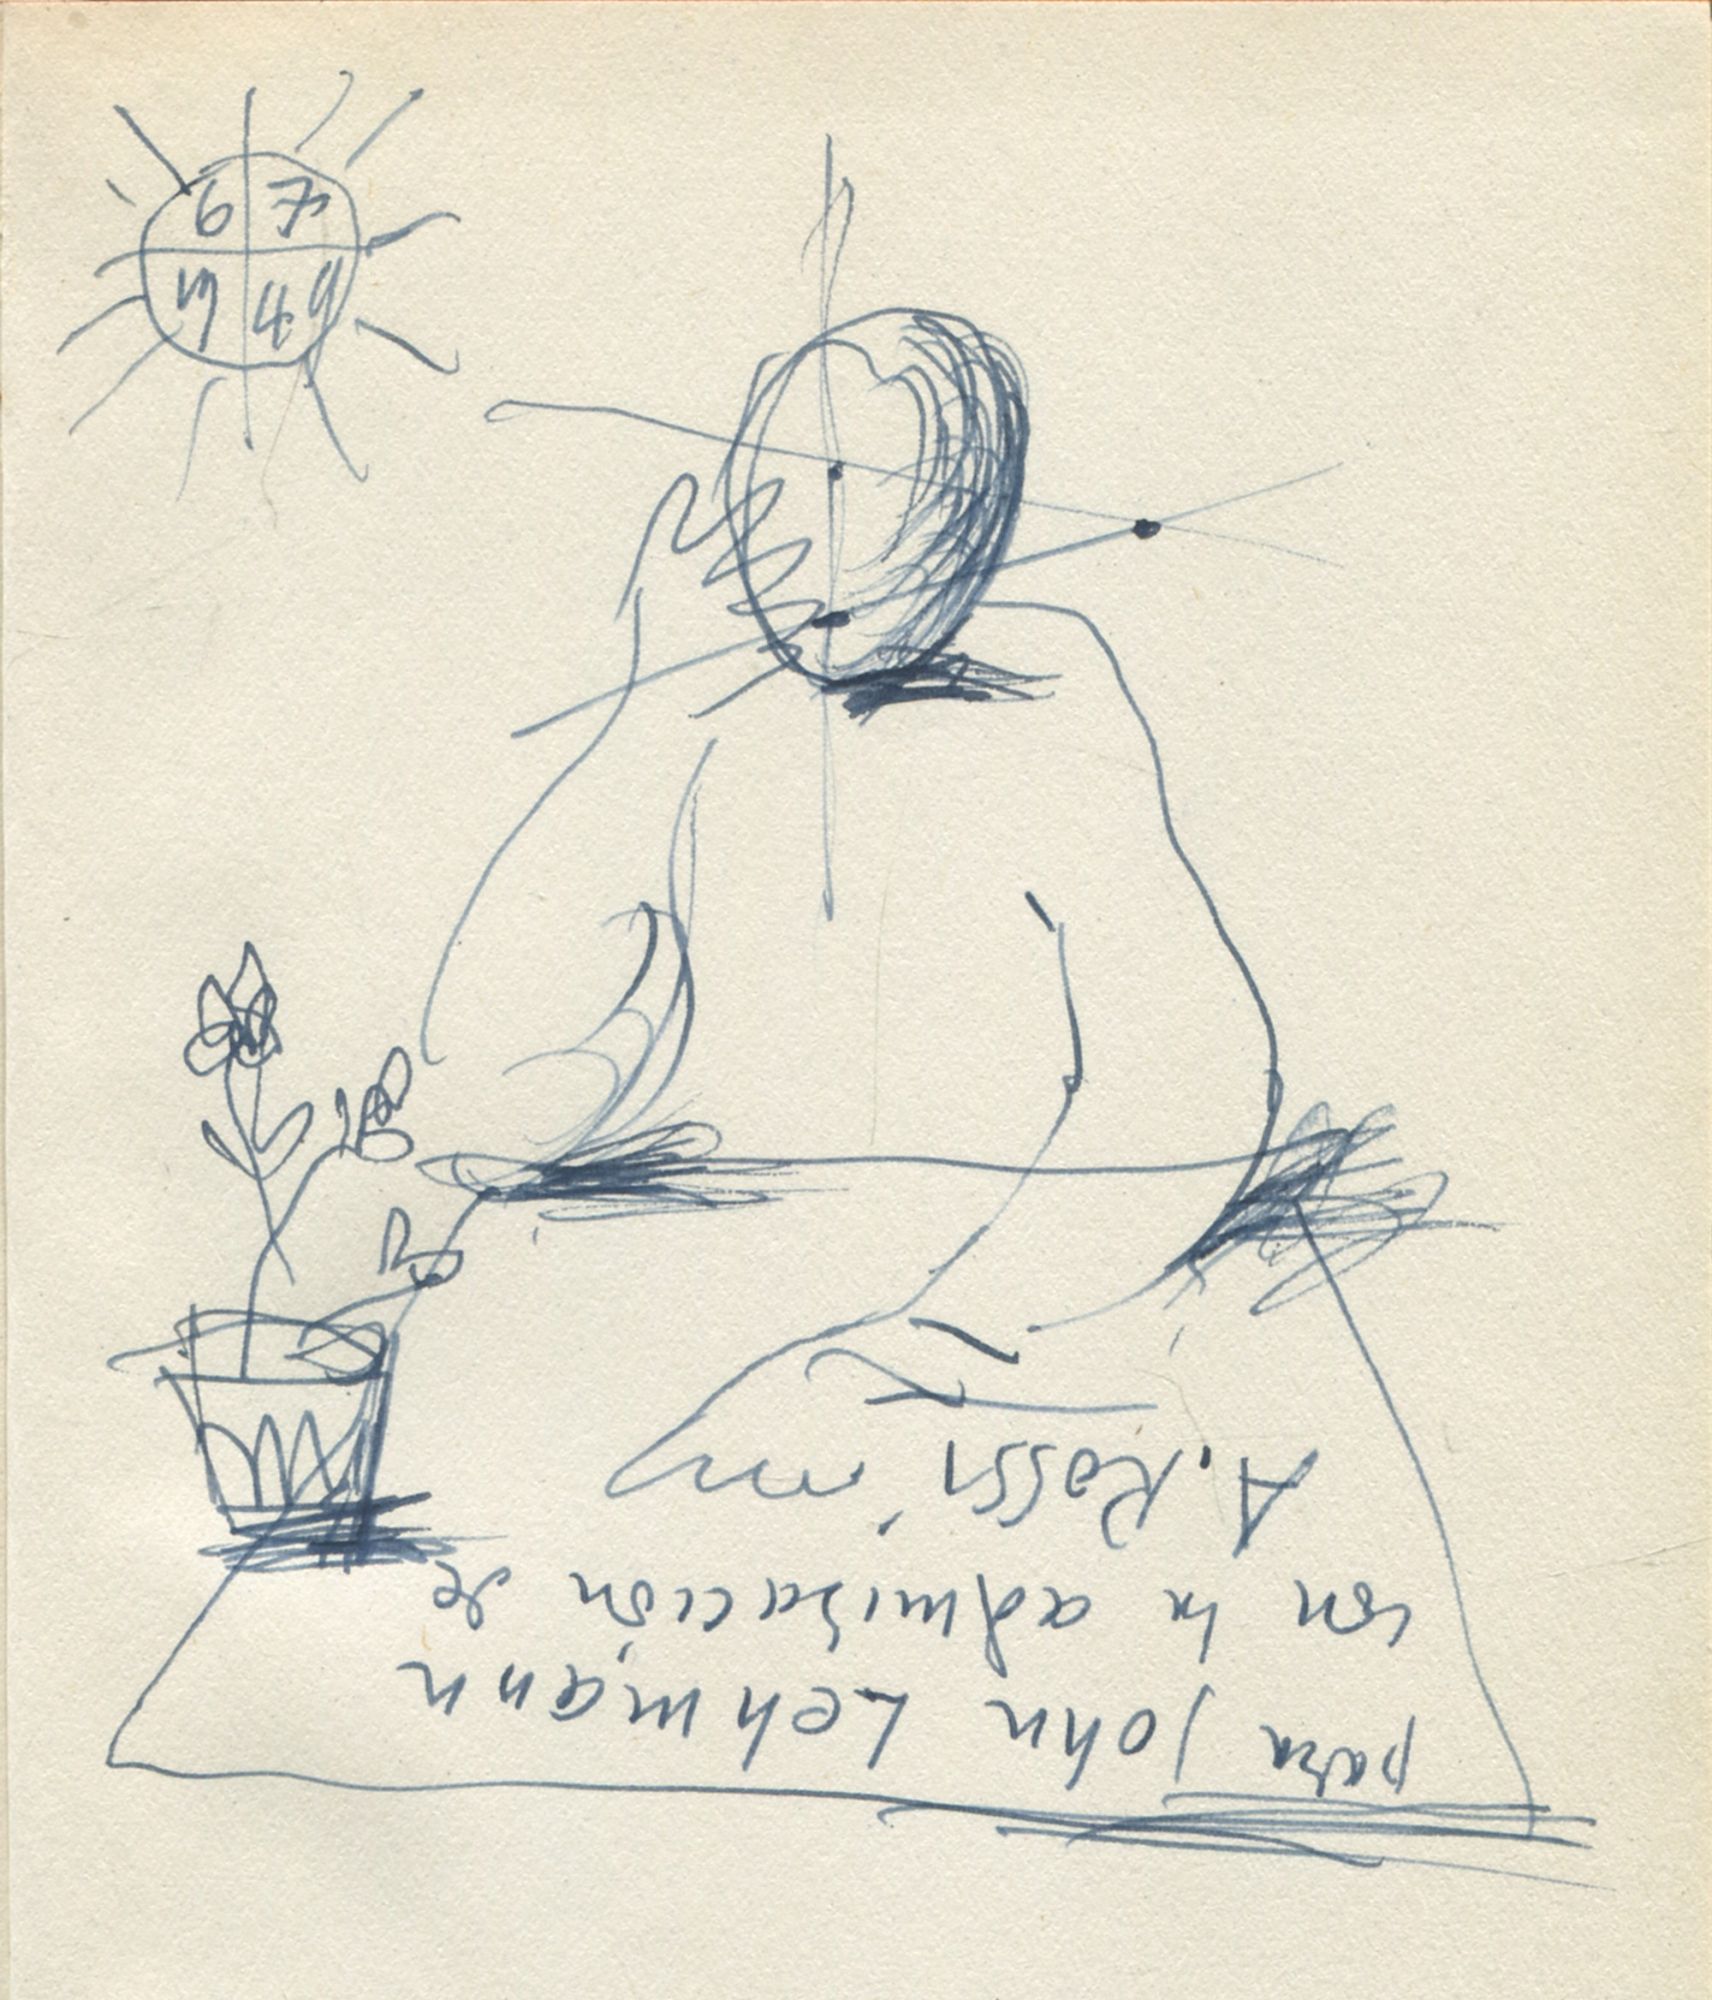 6 7
19 49
para John Lehmann
con la admiración de
A. Rossi